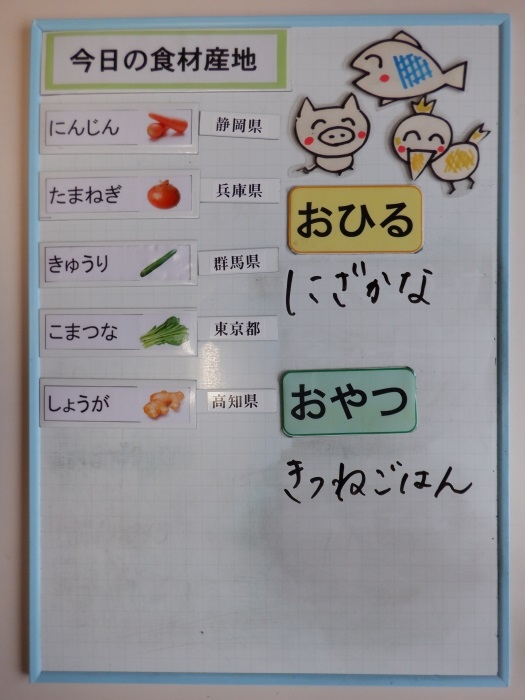 今日の食材産地
にんじん 静岡県
たまねぎ 兵庫県
きゅうり 群馬県
こまつな 東京都
しょうが 高知県
おひる
にざかな
おやつ
きつねごはん